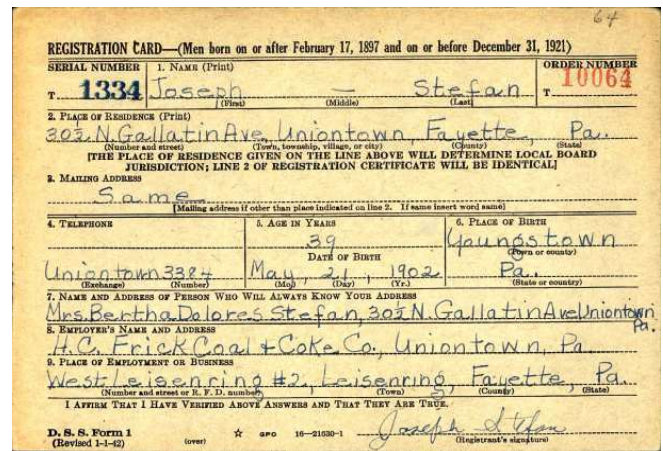 64
REGISTRATION CARD—(Men born on or after February 17, 1897 and on or before December 31, 1921)
SERIAL NUMBER 1. NAME (Print) ORDER NUMBER
T 1334 Joseph — Stefan T 10064
(First) (Middle) (Last)
2. PLACE OF RESIDENCE (Print)
30½ N. Gallatin Ave, Uniontown, Fayette, Pa.
(Number and street) (Town, township, village, or city) (County) (State)
[THE PLACE OF RESIDENCE GIVEN ON THE LINE ABOVE WILL DETERMINE LOCAL BOARD
JURISDICTION; LINE 2 OF REGISTRATION CERTIFICATE WILL BE IDENTICAL]
3. MAILING ADDRESS
Same
[Mailing address if other than place indicated on line 2. If same insert word same]
4. TELEPHONE 5. AGE IN YEARS 6. PLACE OF BIRTH
39 Youngstown
DATE OF BIRTH (Town or county)
Uniontown 3384 May, 21, 1902 Pa.
(Exchange) (Number) (Mo.) (Day) (Yr.) (State or country)
7. NAME AND ADDRESS OF PERSON WHO WILL ALWAYS KNOW YOUR ADDRESS
Mrs. Bertha Dolores Stefan, 30½ N. Gallatin Ave Uniontown Pa.
8. EMPLOYER'S NAME AND ADDRESS
H.C. Frick Coal + Coke Co., Uniontown, Pa.
9. PLACE OF EMPLOYMENT OR BUSINESS
West Leisenring #2, Leisenring, Fayette, Pa.
(Number and street or R. F. D. number) (Town) (County) (State)
I AFFIRM THAT I HAVE VERIFIED ABOVE ANSWERS AND THAT THEY ARE TRUE.
D. S. S. Form 1
(Revised 1-1-42) (over) ☆ GPO 16—21630-1 Joseph Stefan
(Registrant's signature)